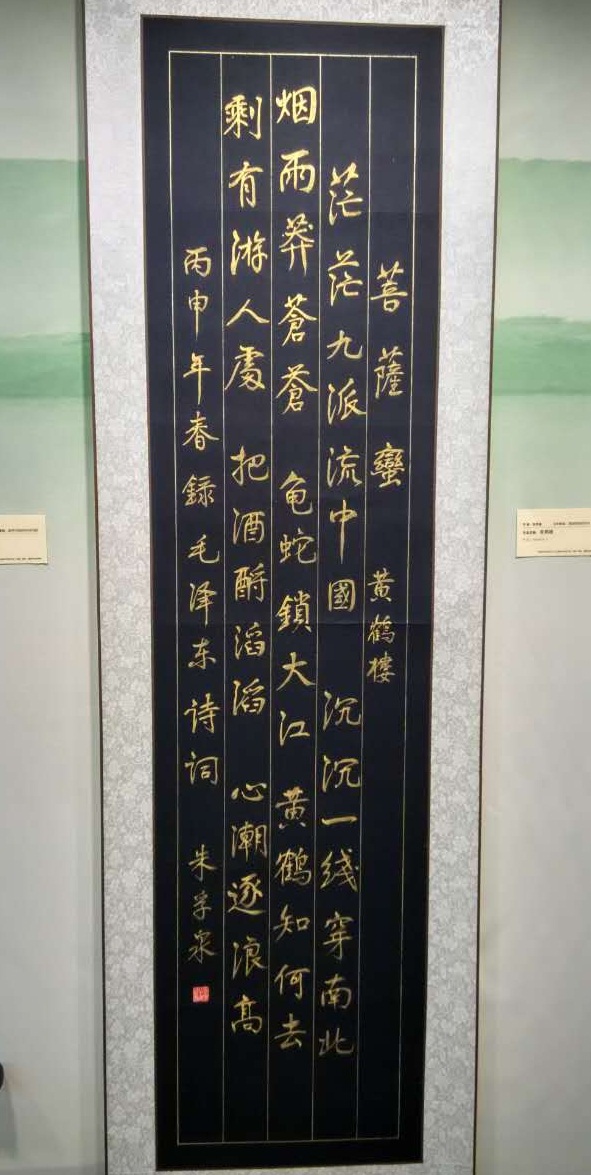 菩薩蠻 黄鶴樓
茫茫九派流中國 沉沉一线穿南北
烟雨莽蒼蒼 龟蛇鎖大江 黄鶴知何去
剩有游人處 把酒酹滔滔 心潮逐浪高
丙申年春録毛泽东诗词 朱孚泉